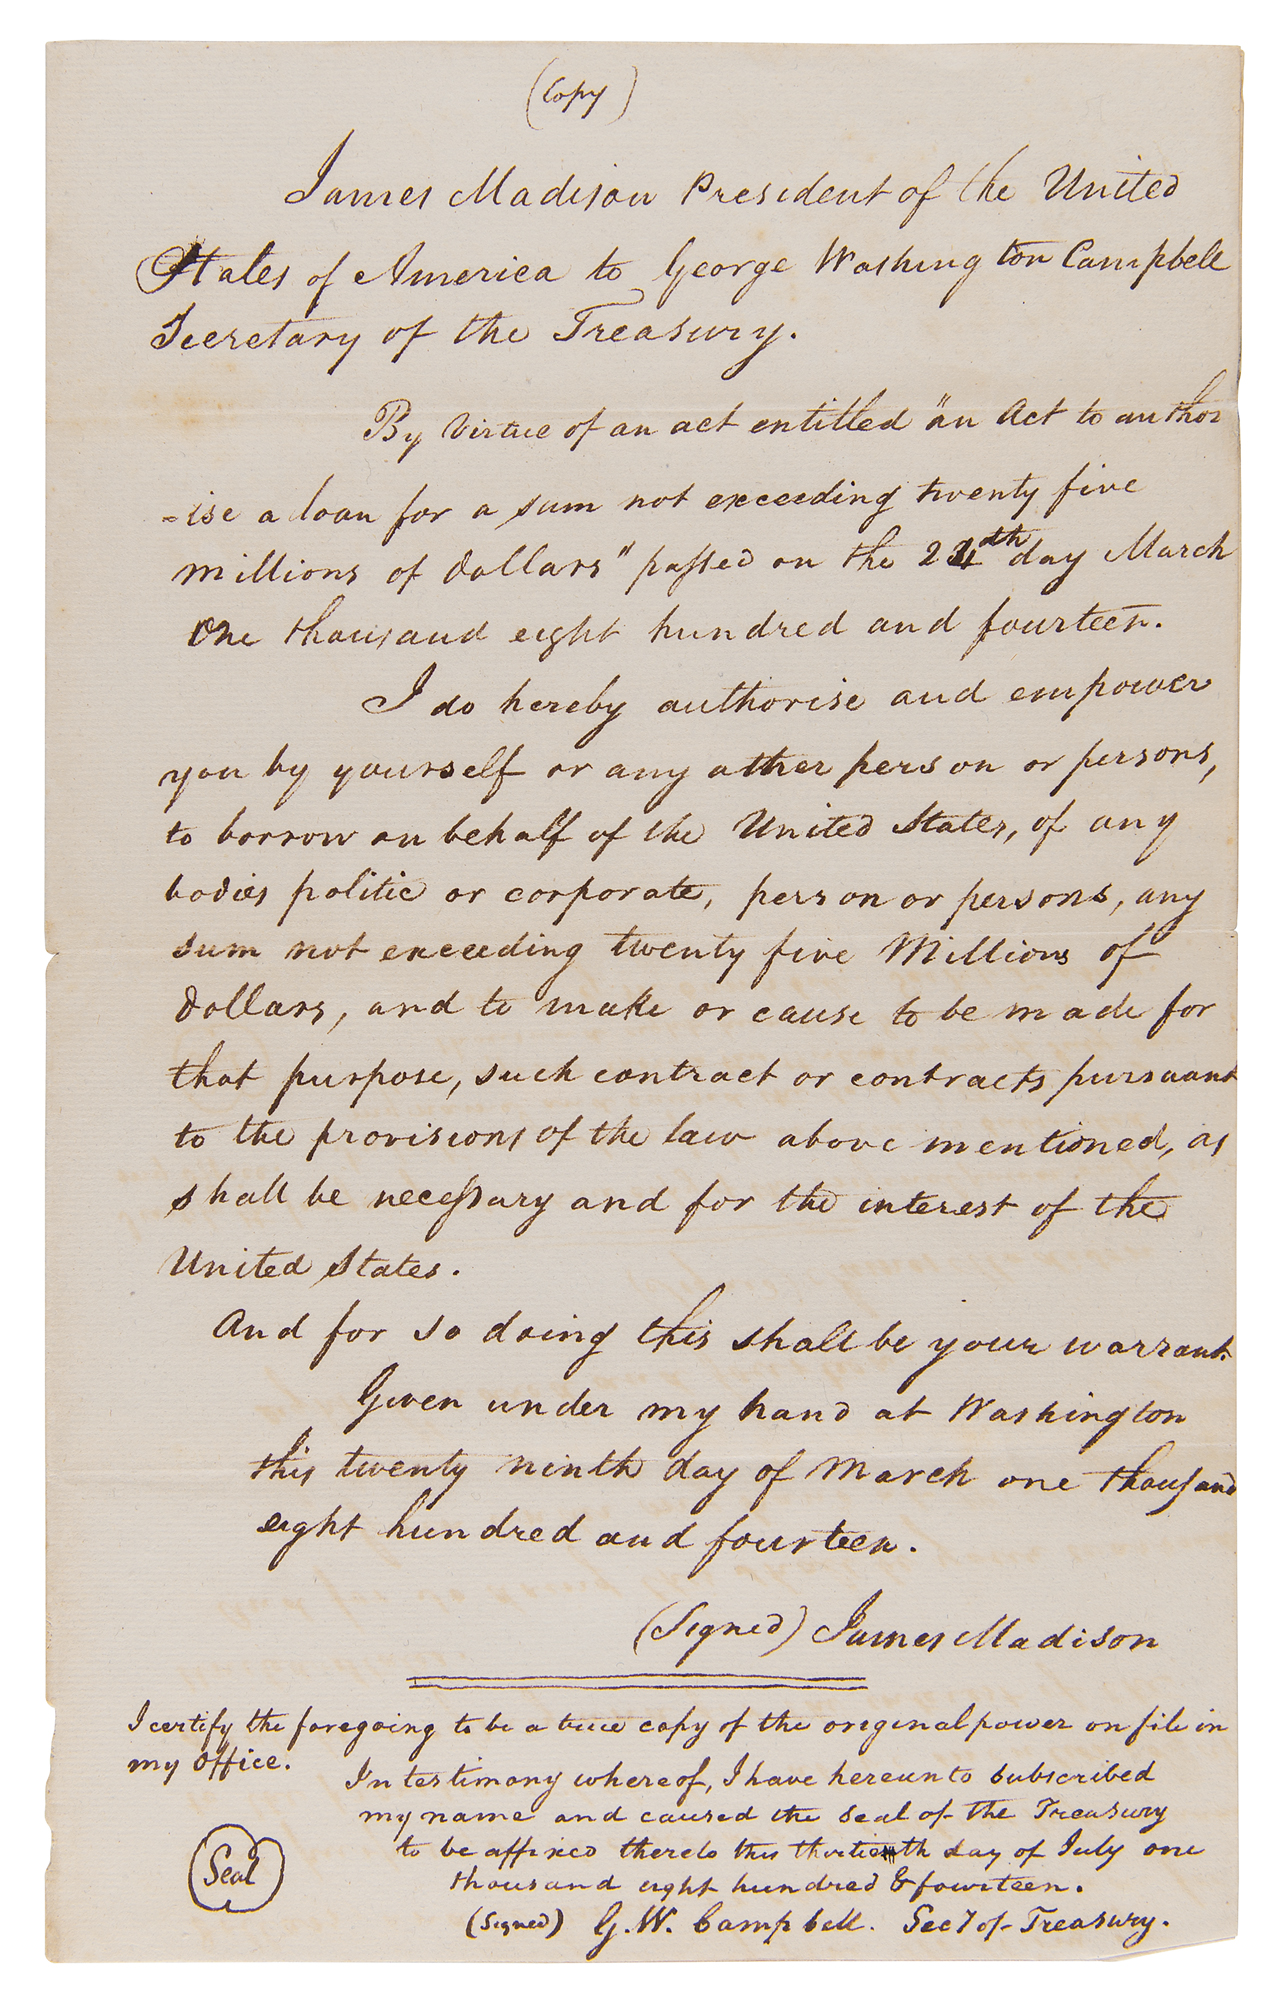 (Copy)
James Madison President of the United
States of America to George Washington Campbell
Secretary of the Treasury.
By Virtue of an act entitled "an Act to author
=ise a loan for a sum not exceeding twenty five
millions of dollars" passed on the 24th day March
One thousand eight hundred and fourteen.
I do hereby authorise and empower
you by yourself or any other person or persons,
to borrow on behalf of the United States, of any
bodies politic or corporate, person or persons, any
sum not exceeding twenty five Millions of
dollars, and to make or cause to be made for
that purpose, such contract or contracts pursuant
to the provisions of the law above mentioned, as
shall be necessary and for the interest of the
United States.
And for so doing this shall be your warrant.
Given under my hand at Washington
this twenty ninth day of March one thousand
eight hundred and fourteen.
(Signed) James Madison
I certify the foregoing to be a true copy of the original power on file in
my office.
In testimony whereof, I have hereunto subscribed
my name and caused the seal of the Treasury
to be affixed thereto this thirtieth day of July one
thousand eight hundred & fourteen.
Seal
(Signed) G. W. Campbell. Secy of Treasury.